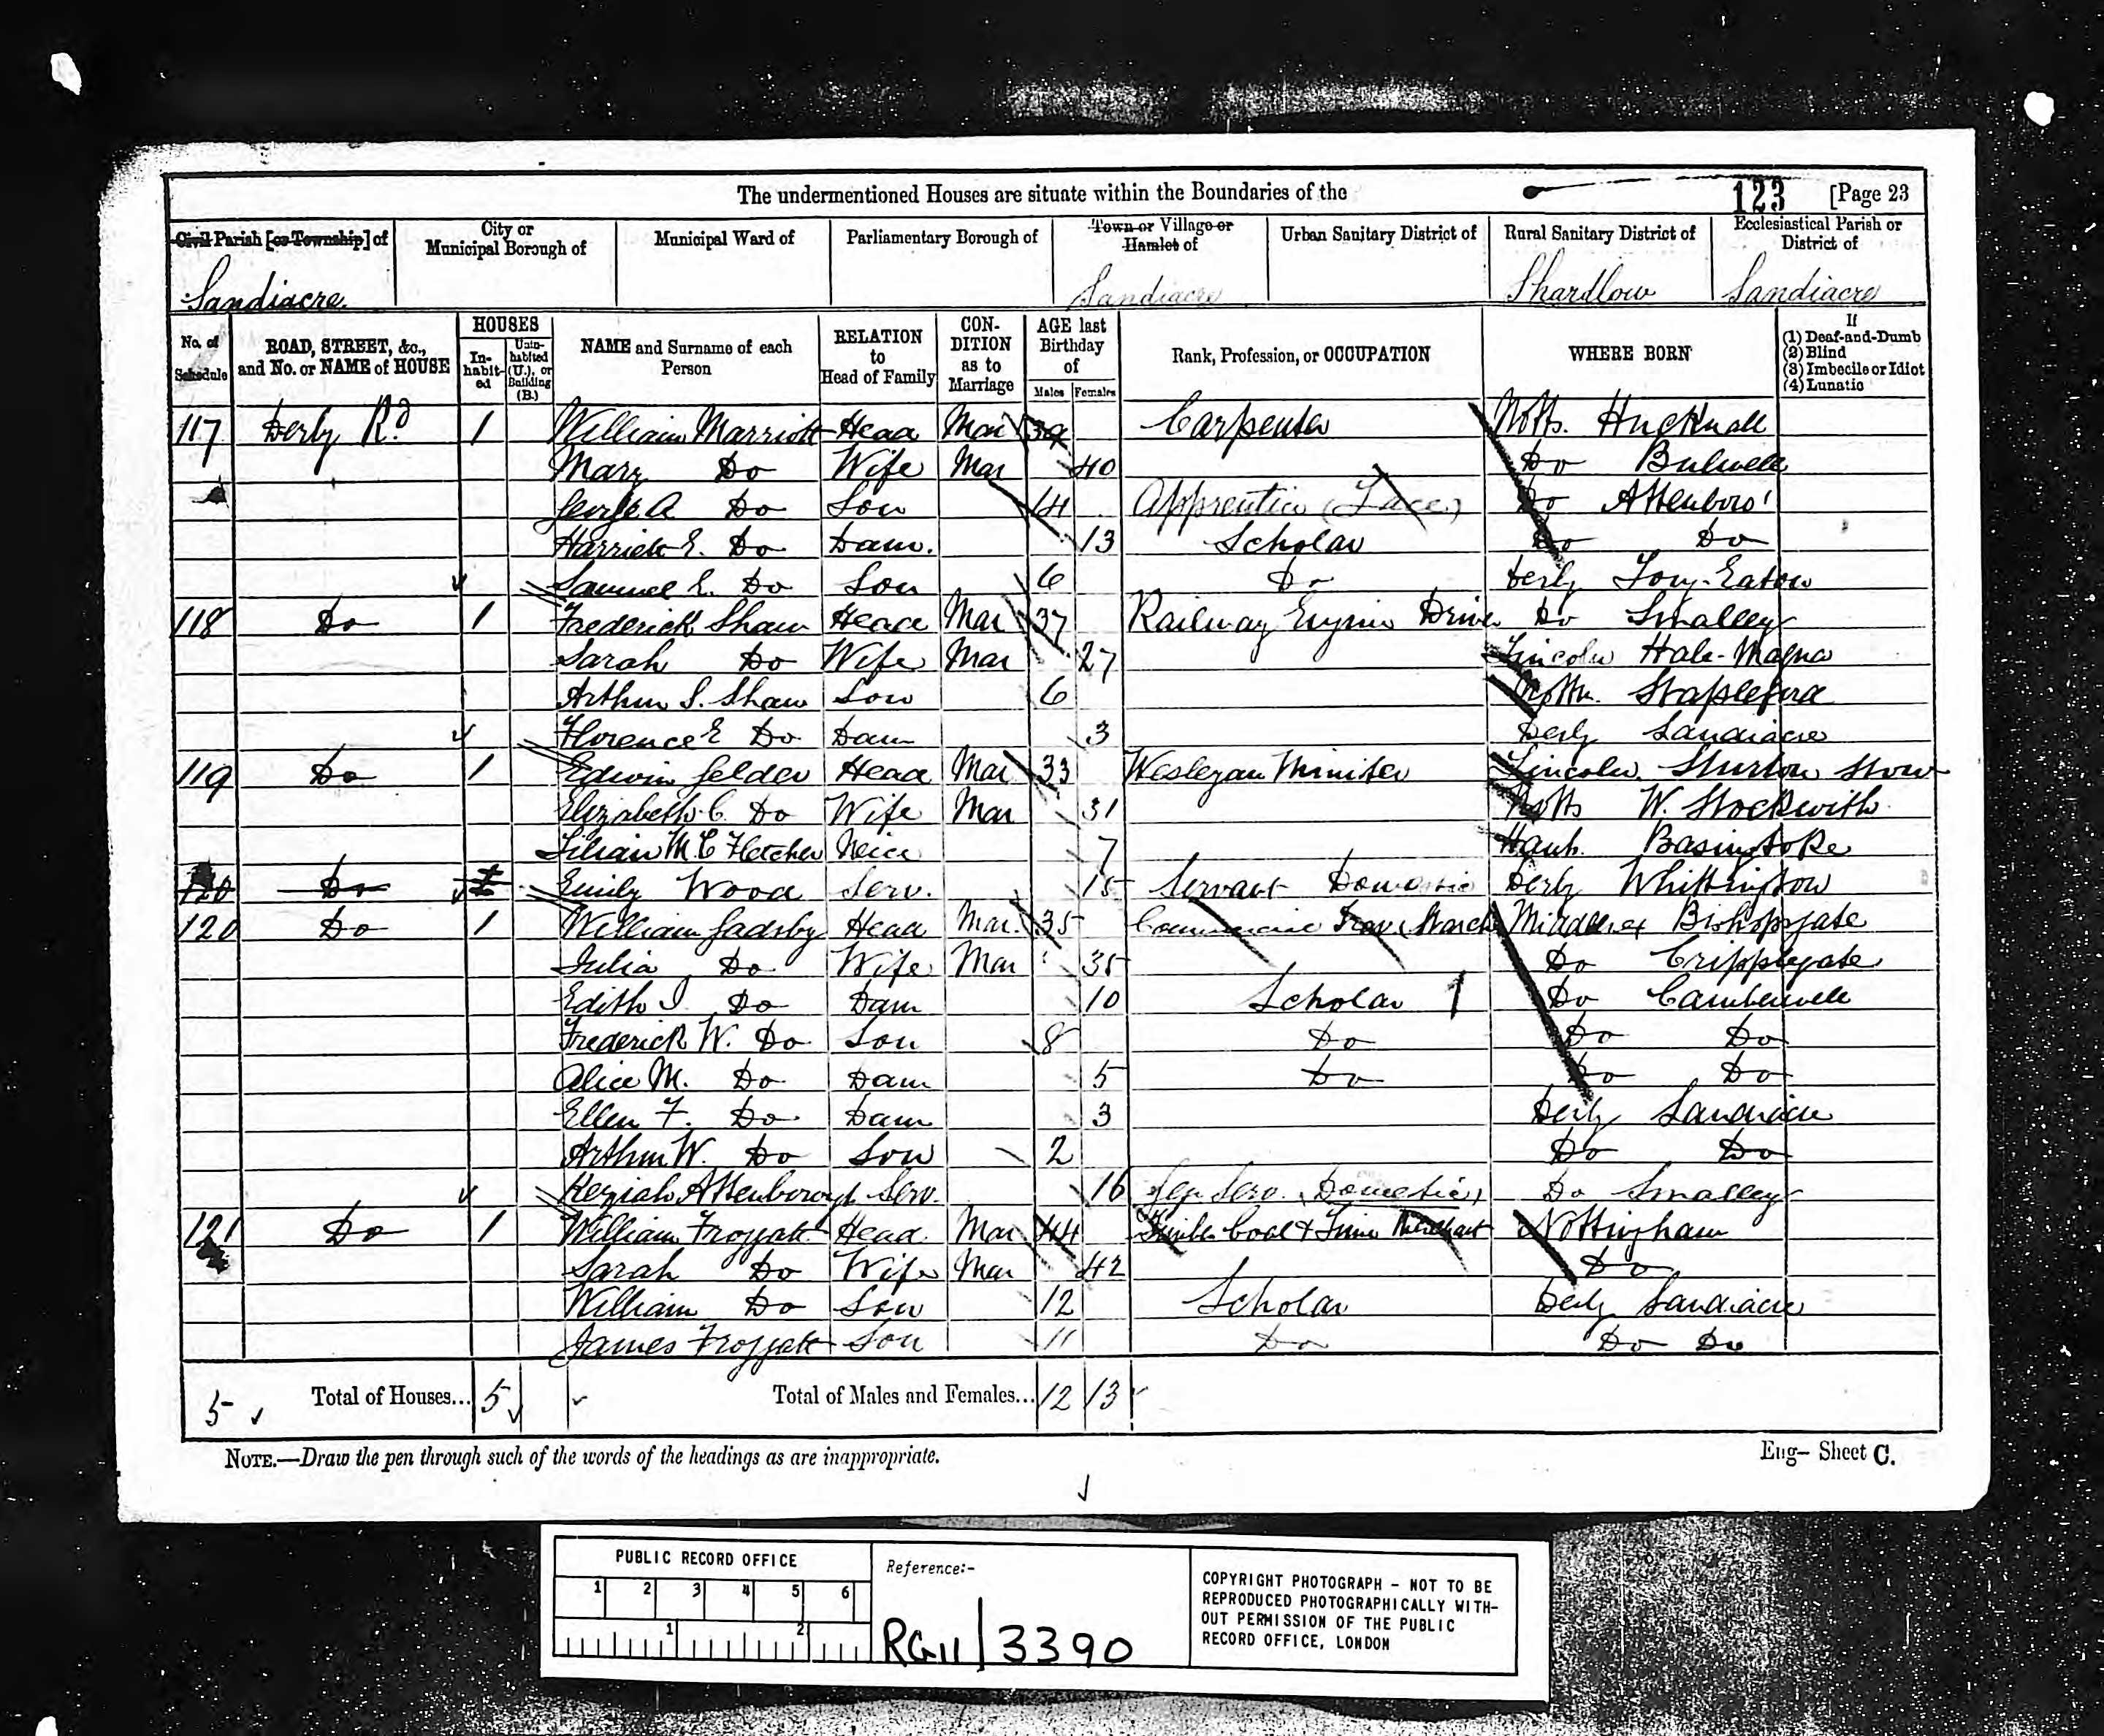 The undermentioned Houses are situate within the Boundaries of the 123 [Page 23
Civil Parish [or Township] of City or Municipal Borough of Municipal Ward of Parliamentary Borough of Town or Village or Hamlet of Urban Sanitary District of Rural Sanitary District of Ecclesiastical Parish or District of
Sandiacre Sandiacre Shardlow Sandiacre
No. of Schedule ROAD, STREET, &c., and No. or NAME of HOUSE HOUSES In-habit-ed Unin-habited (U.), or Building (B.) NAME and Surname of each Person RELATION to Head of Family CON-DITION as to Marriage AGE last Birthday of Males Females Rank, Profession, or OCCUPATION WHERE BORN If (1) Deaf-and-Dumb (2) Blind (3) Imbecile or Idiot (4) Lunatic
117 Derby Rd 1 William Marriott Head Mar 39 Carpenter Notts. Hucknall
Mary Do Wife Mar 40 Do Bulwell
George A Do Son 14 Apprentice (Lace) Do Attenboro'
Harriett E. Do Daur. 13 Scholar Do Do
Samuel E. Do Son 6 Do Derby Long-Eaton
118 Do 1 Frederick Shaw Head Mar 37 Railway Engine Driver Do Smalley
Sarah Do Wife Mar 27 Lincoln Hale-Magna
Arthur S. Shaw Son 6 Notts. Stapleford
Florence E Do Daur 3 Derby Sandiacre
119 Do 1 Edwin Gelder Head Mar 33 Wesleyan Minister Lincoln. Sturton Stow
Elizabeth C. Do Wife Mar 31 Notts W. Stockwith
Lilian M. C Fletcher Neice 7 Hants. Basingstoke
120 Do 1 Emily Wood Serv. 15 Servant Domestic Derby Whittington
120 Do 1 William Gadsby Head Mar. 35 Trav (Starch Middlesex Bishopsgate
Julia Do Wife Mar 35 Do Cripplegate
Edith J Do Daur 10 Scholar Do Camberwell
Frederick W. Do Son 8 Do Do Do
Alice M. Do Daur 5 Do Do Do
Ellen F. Do Daur 3 Derby Sandiacre
Arthur W. Do Son 2 Do Do
Keziah Attenborough Serv. 16 Gen Serv. (Domestic) Do Smalley
121 Do 1 William Froggatt Head Mar 44 Timber Coal & Lime Merchant Nottingham
Sarah Do Wife Mar 42 Do
William Do Son 12 Scholar Derby Sandiacre
James Froggatt Son 11 Do Do Do
5 Total of Houses... 5 Total of Males and Females... 12 13
NOTE.—Draw the pen through such of the words of the headings as are inappropriate.
Eng– Sheet C.
PUBLIC RECORD OFFICE
1 2 3 4 5 6
1 2
Reference:-
RG11/3390
COPYRIGHT PHOTOGRAPH – NOT TO BE
REPRODUCED PHOTOGRAPHICALLY WITH-
OUT PERMISSION OF THE PUBLIC
RECORD OFFICE, LONDON